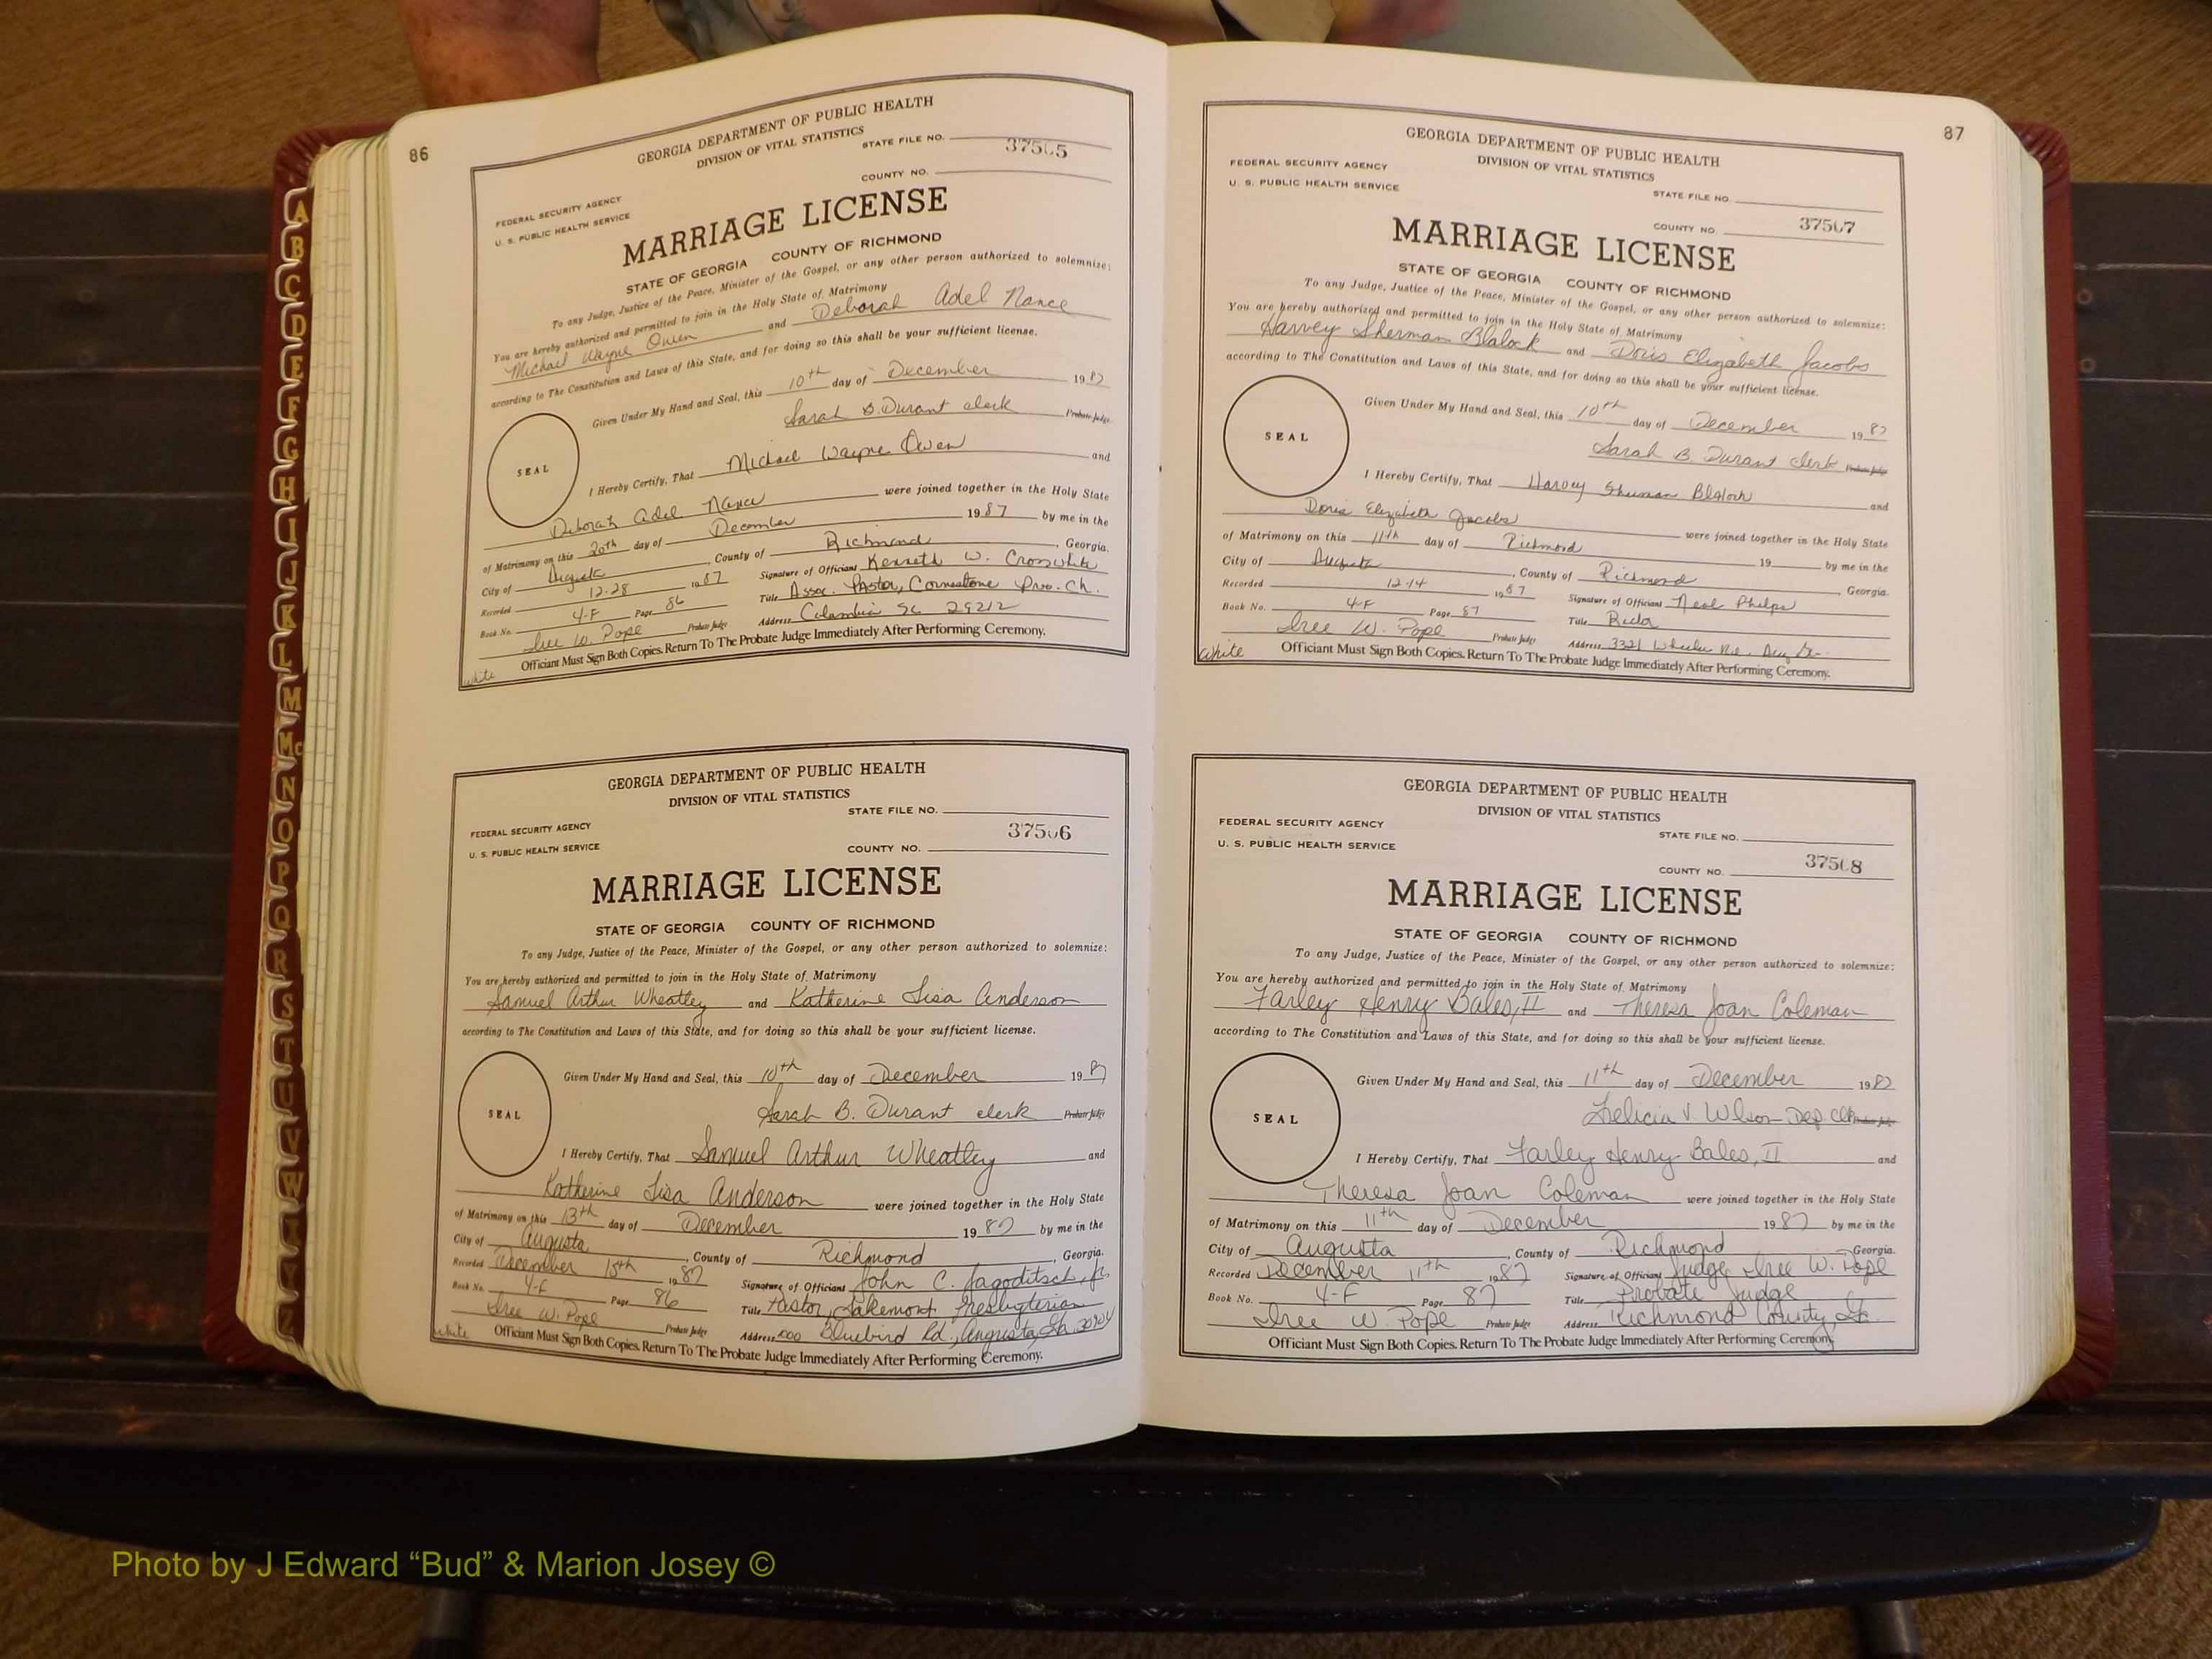 86
GEORGIA DEPARTMENT OF PUBLIC HEALTH
DIVISION OF VITAL STATISTICS
STATE FILE NO. 37505
COUNTY NO.
FEDERAL SECURITY AGENCY
U. S. PUBLIC HEALTH SERVICE
MARRIAGE LICENSE
STATE OF GEORGIA COUNTY OF RICHMOND
To any Judge, Justice of the Peace, Minister of the Gospel, or any other person authorized to solemnize:
You are hereby authorized and permitted to join in the Holy State of Matrimony
Michael Wayne Owen and Deborah Adel Nance
according to The Constitution and Laws of this State, and for doing so this shall be your sufficient license.
Given Under My Hand and Seal, this 10th day of December 1987
Sarah B. Durant clerk Probate Judge
SEAL
I Hereby Certify, That Michael Wayne Owen and
Deborah Adel Nance were joined together in the Holy State
of Matrimony on this 20th day of December 1987 by me in the
City of Augusta, County of Richmond, Georgia.
Recorded 12-28 1987 Signature of Officiant Kenneth W. Crosswhite
Book No. 4-F Page 86 Title Assoc. Pastor, Cornerstone Pres. Ch.
Iree W. Pope Probate Judge Address Columbia SC 29212
Officiant Must Sign Both Copies. Return To The Probate Judge Immediately After Performing Ceremony.
white
GEORGIA DEPARTMENT OF PUBLIC HEALTH
DIVISION OF VITAL STATISTICS
STATE FILE NO.
37506
FEDERAL SECURITY AGENCY
U. S. PUBLIC HEALTH SERVICE
COUNTY NO.
MARRIAGE LICENSE
STATE OF GEORGIA COUNTY OF RICHMOND
To any Judge, Justice of the Peace, Minister of the Gospel, or any other person authorized to solemnize:
You are hereby authorized and permitted to join in the Holy State of Matrimony
Samuel Arthur Wheatley and Katherine Lisa Anderson
according to The Constitution and Laws of this State, and for doing so this shall be your sufficient license.
Given Under My Hand and Seal, this 10th day of December 1987
Sarah B. Durant clerk Probate Judge
SEAL
I Hereby Certify, That Samuel Arthur Wheatley and
Katherine Lisa Anderson were joined together in the Holy State
of Matrimony on this 13th day of December 1987 by me in the
City of Augusta, County of Richmond, Georgia.
Recorded December 15th 1987 Signature of Officiant John C. Jagoditsch, Jr.
Book No. 4-F Page 86 Title Pastor, Lakemont Presbyterian
Iree W. Pope Probate Judge Address Bluebird Rd., Augusta, Ga. 30904
Officiant Must Sign Both Copies. Return To The Probate Judge Immediately After Performing Ceremony.
white
87
GEORGIA DEPARTMENT OF PUBLIC HEALTH
DIVISION OF VITAL STATISTICS
FEDERAL SECURITY AGENCY
U. S. PUBLIC HEALTH SERVICE
STATE FILE NO.
COUNTY NO. 37507
MARRIAGE LICENSE
STATE OF GEORGIA COUNTY OF RICHMOND
To any Judge, Justice of the Peace, Minister of the Gospel, or any other person authorized to solemnize:
You are hereby authorized and permitted to join in the Holy State of Matrimony
Harvey Sherman Blalock and Doris Elizabeth Jacobs
according to The Constitution and Laws of this State, and for doing so this shall be your sufficient license.
Given Under My Hand and Seal, this 10th day of December 1987
Sarah B. Durant clerk Probate Judge
SEAL
I Hereby Certify, That Harvey Sherman Blalock and
Doris Elizabeth Jacobs were joined together in the Holy State
of Matrimony on this 11th day of Richmond 19 by me in the
City of Augusta, County of Richmond, Georgia.
Recorded 12-14 1987 Signature of Officiant Neal Phelps
Book No. 4-F Page 87 Title
Iree W. Pope Probate Judge Address 3321 Wheeler Rd. Aug Ga.
white
Officiant Must Sign Both Copies. Return To The Probate Judge Immediately After Performing Ceremony.
GEORGIA DEPARTMENT OF PUBLIC HEALTH
DIVISION OF VITAL STATISTICS
FEDERAL SECURITY AGENCY
U. S. PUBLIC HEALTH SERVICE
STATE FILE NO.
COUNTY NO. 37508
MARRIAGE LICENSE
STATE OF GEORGIA COUNTY OF RICHMOND
To any Judge, Justice of the Peace, Minister of the Gospel, or any other person authorized to solemnize:
You are hereby authorized and permitted to join in the Holy State of Matrimony
Farley Henry Bales, II and Theresa Joan Coleman
according to The Constitution and Laws of this State, and for doing so this shall be your sufficient license.
Given Under My Hand and Seal, this 11th day of December 1987
Felicia V. Wilson Dep Clk
SEAL
I Hereby Certify, That Farley Henry Bales, II and
Theresa Joan Coleman were joined together in the Holy State
of Matrimony on this 11th day of December 1987 by me in the
City of Augusta, County of Richmond, Georgia.
Recorded December 11th 1987 Signature of Officiant Judge Iree W. Pope
Book No. 4-F Page 87 Title Probate Judge
Iree W. Pope Probate Judge Address Richmond County, Ga.
Officiant Must Sign Both Copies. Return To The Probate Judge Immediately After Performing Ceremony.
A
B
C
D
E
F
G
H
I
J
K
L
M
Mc
N
O
P
Q
R
S
T
U
V
W
Z
Photo by J Edward “Bud” & Marion Josey ©